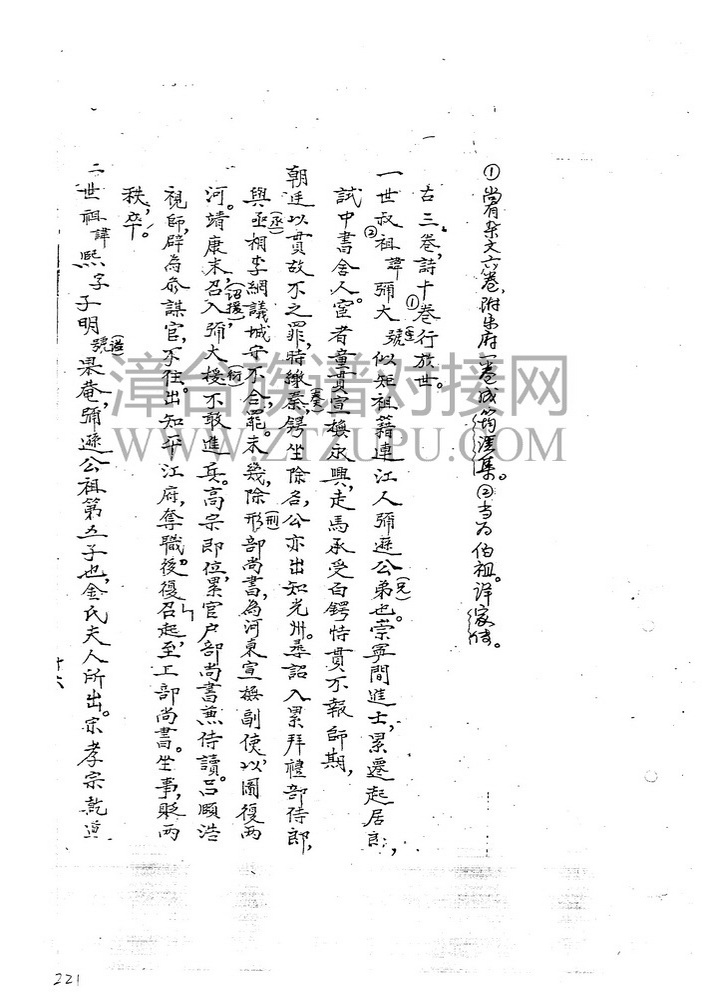 ①尚有杂文六卷,附宋府一卷成筠溪集。②当为伯祖。详家传。
古三卷,詩十卷①行於世。
一世叔祖②諱彌大號(室)似矩祖籍連江人彌遜公弟(兄)也。崇寧間進士,累遷起居郎,
試中書舍人。宦者童貫宣撫永興,走馬承受白鍔恃貫不報師期,
朝廷以貫故不之罪,時繳奏,鍔坐除名,公亦出知光州。尋詔入累拜禮部侍郎,
與(丞)丞相李綱議城守不合罷。未幾,除形(刑)部尚書,為河東宣撫副使,以圖復兩
河。靖康末,召入,彌大(詔援)援(衍)不敢進兵。高宗即位,累官户部尚書兼侍讀。吕頤浩
視師,辟為參謀官,不往。出知平江府,奪職,後復召起,至工部尚書。坐事,貶兩
秩,卒。
二世祖諱熙字子明號(谥)果菴,彌遜公祖第五子也,金氏夫人所出。宗孝宗乾道
十六
221
漳台族谱对接网
WWW.ZTZUPU.COM